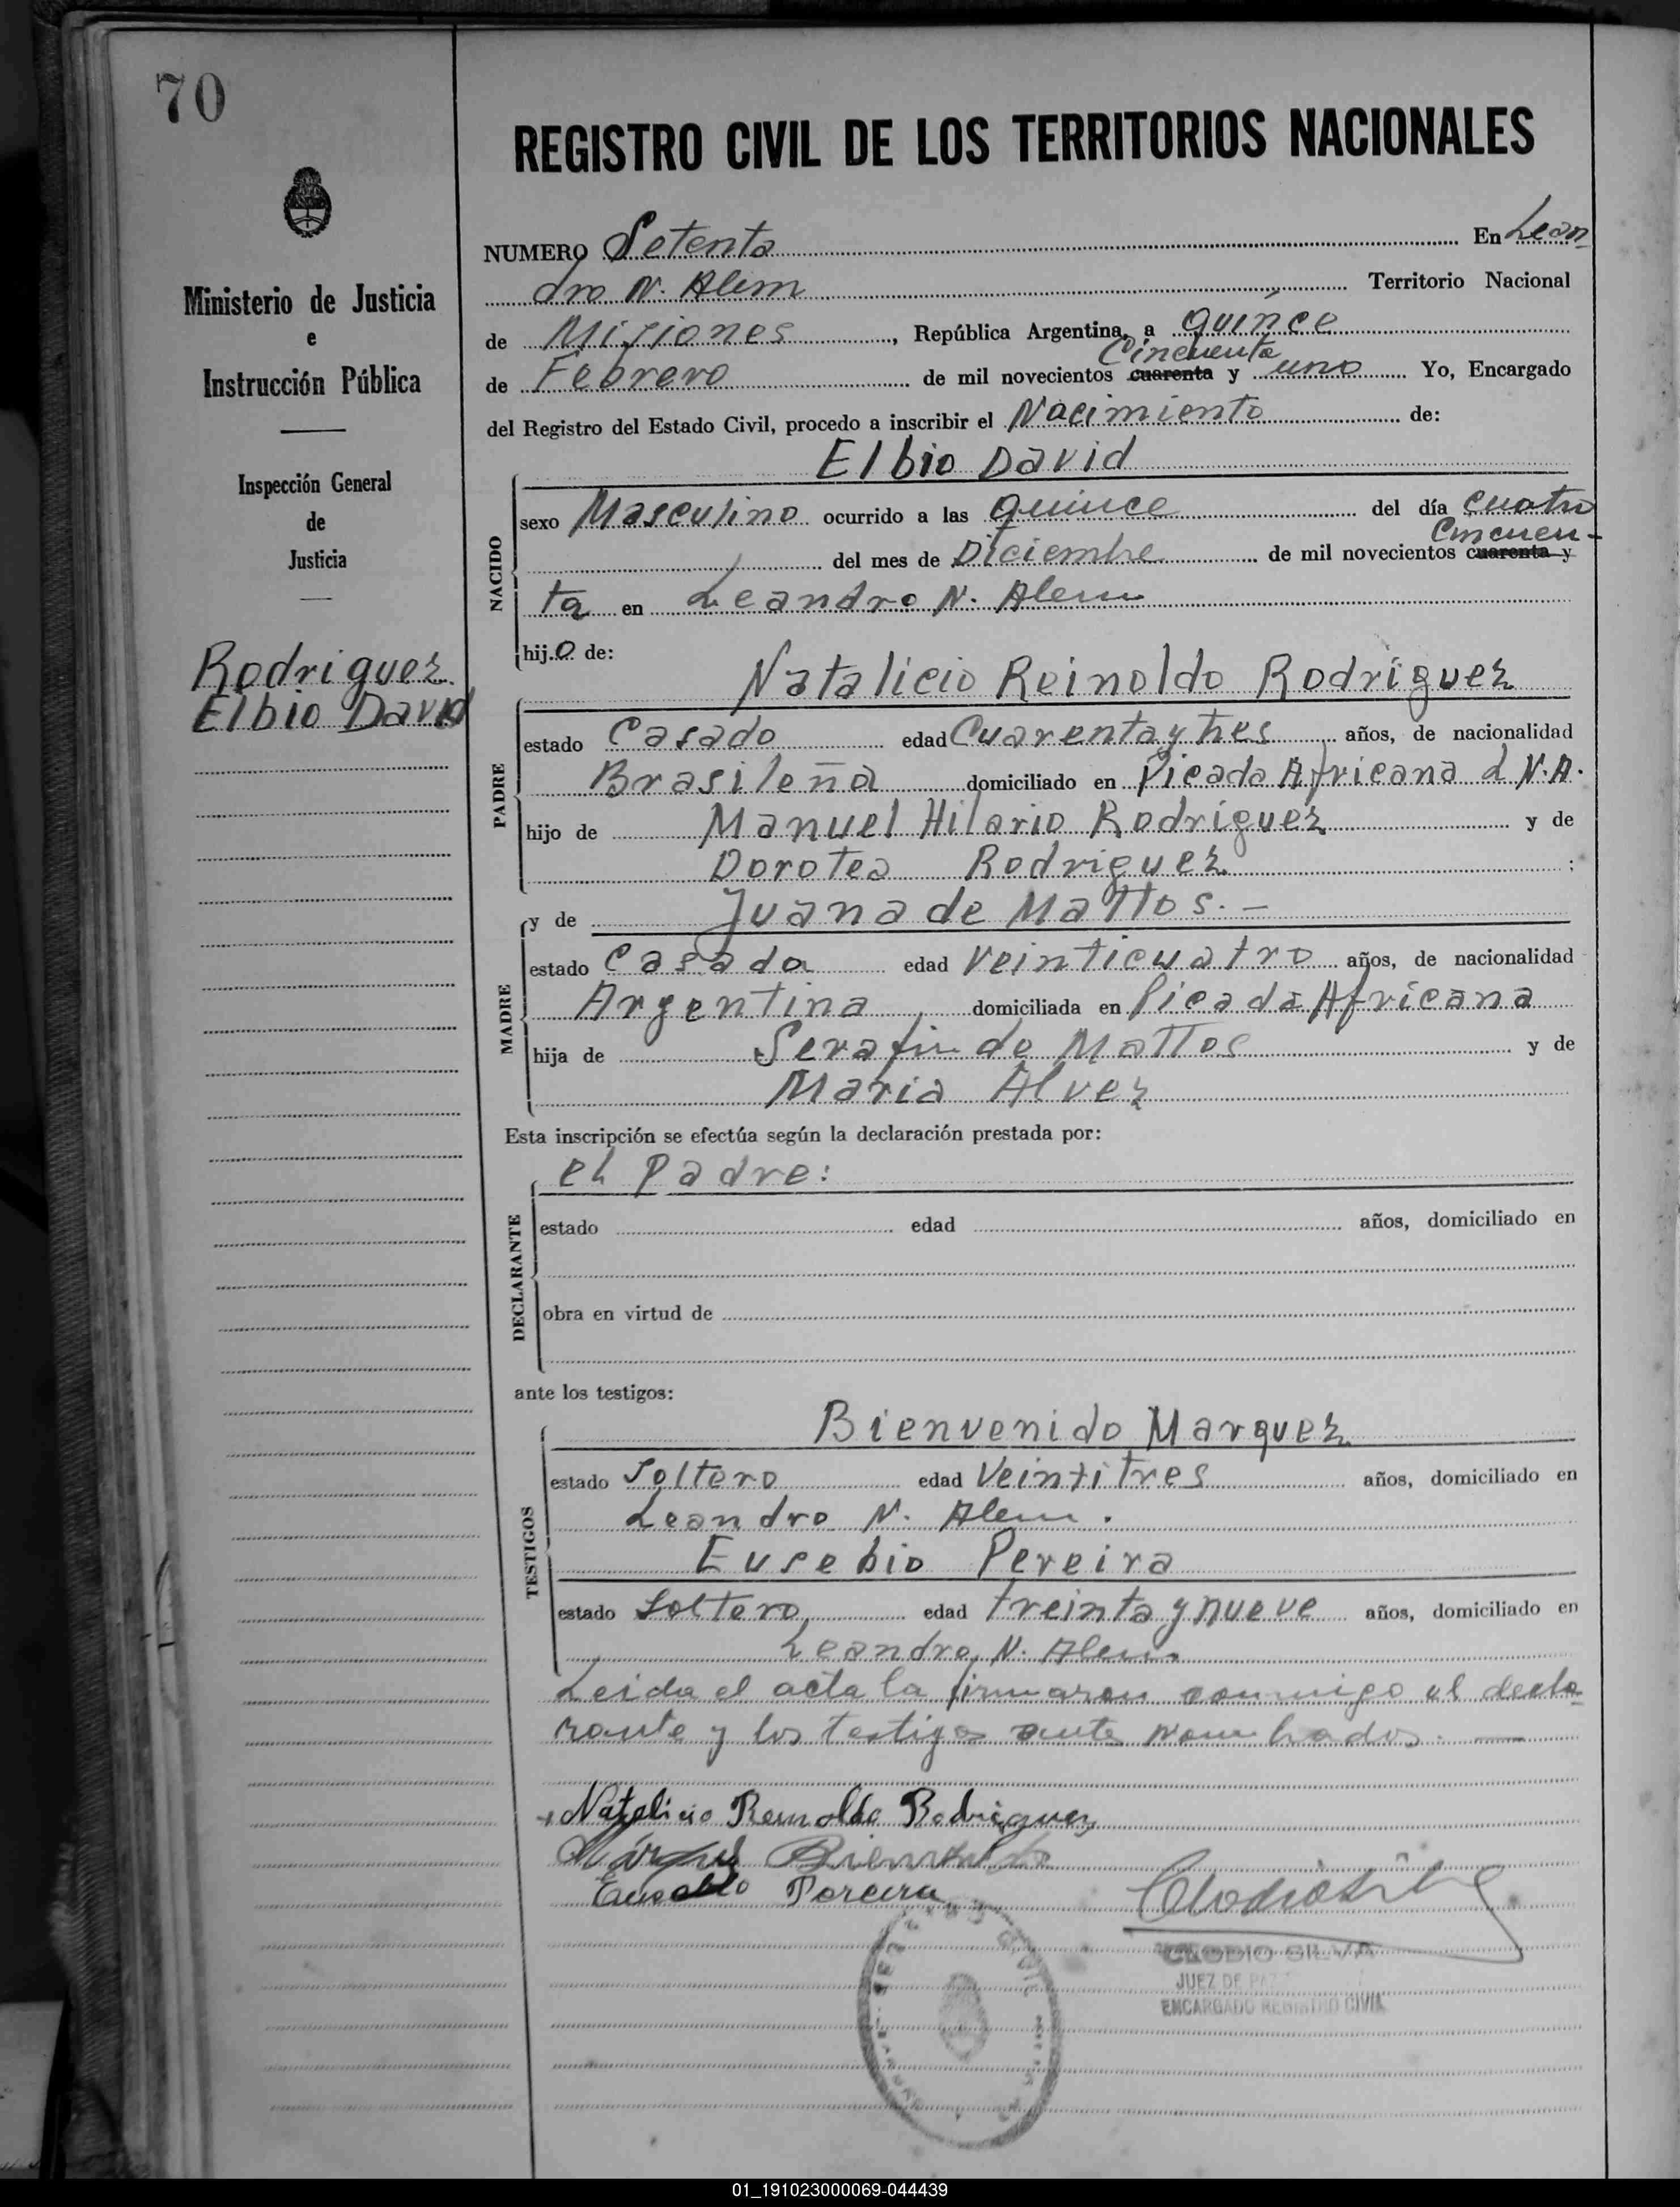 70
Ministerio de Justicia
e
Instrucción Pública
Inspección General
de
Justicia
Rodriguez
Elbio David
REGISTRO CIVIL DE LOS TERRITORIOS NACIONALES
NUMERO Setenta En Lean
dro N. Alem Territorio Nacional
de Misiones, República Argentina, a quince
Cincuenta
de Febrero de mil novecientos cuarenta y uno Yo, Encargado
del Registro del Estado Civil, procedo a inscribir el Nacimiento de:
Elbio David
NACIDO
sexo Masculino ocurrido a las quince del día cuatro
Cincuen-
del mes de Diciembre de mil novecientos cuarenta y
ta en Leandro N. Alem
hijo de:
Natalicio Reinoldo Rodriguez
PADRE
estado Casado edad Cuarenta y tres años, de nacionalidad
Brasileña domiciliado en Picada Africana L N.A.
hijo de Manuel Hilario Rodriguez y de
Dorotea Rodriguez ;
y de Juana de Mattos. -
MADRE
estado Casada edad Veinticuatro años, de nacionalidad
Argentina domiciliada en Picada Africana
hija de Serafin de Mattos y de
Maria Alvez
Esta inscripción se efectúa según la declaración prestada por:
el Padre:
DECLARANTE
estado edad años, domiciliado en
obra en virtud de
ante los testigos:
Bienvenido Marquez
TESTIGOS
estado Soltero edad Veintitres años, domiciliado en
Leandro N. Alem.
Eusebio Pereira
estado Soltero edad treinta y nueve años, domiciliado en
Leandro N. Alem.
Leida el acta la firmaron conmigo el decla-
rante y los testigos ante nombrados.
Natalicio Reinoldo Rodriguez
Márquez Bienvenido
Eusebio Pereira
CLODIO SILVA
JUEZ DE PAZ
ENCARGADO REGISTRO CIVIL
01_191023000069-044439